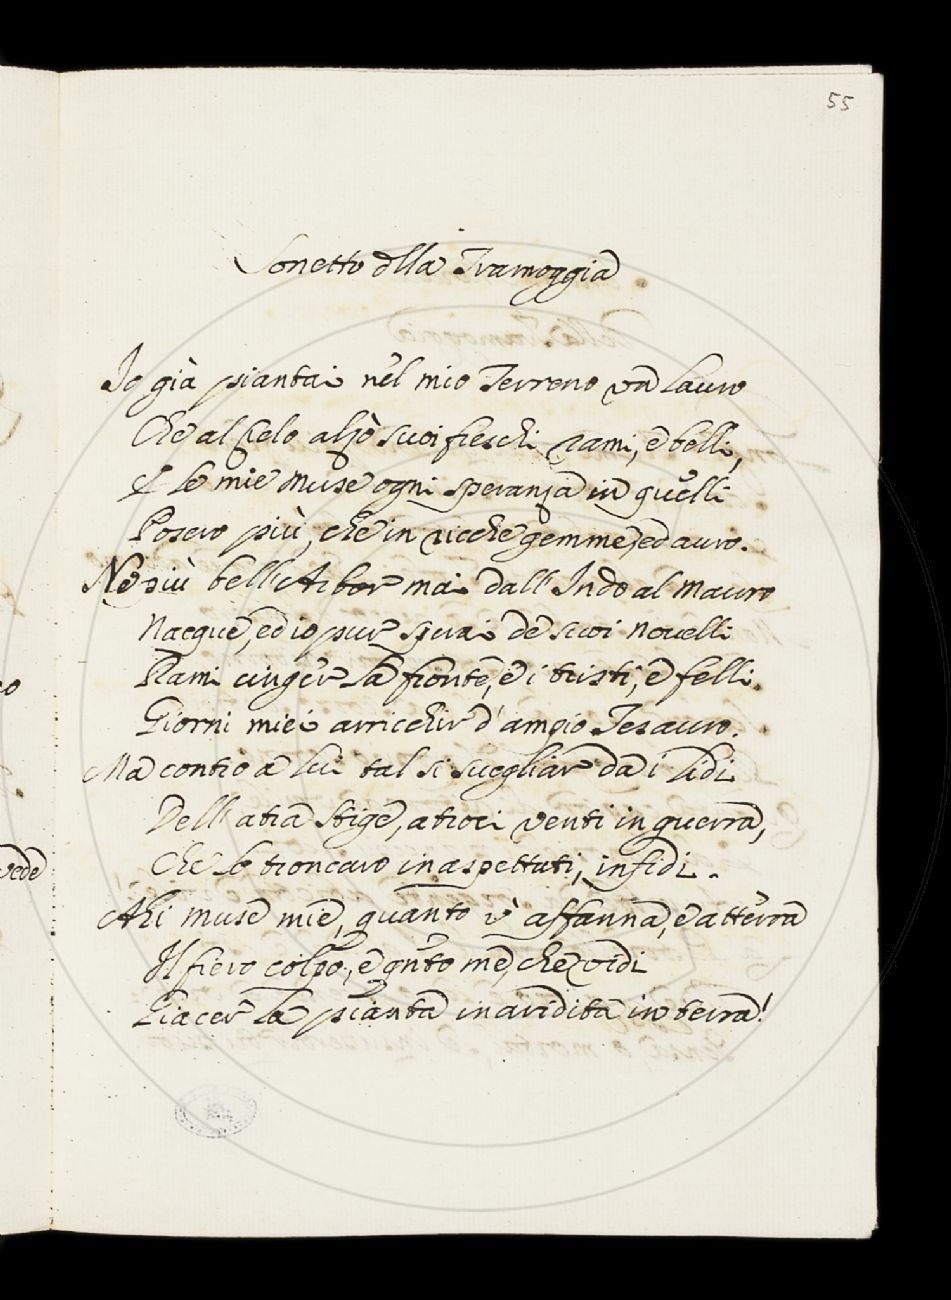 55
Sonetto dlla Tramoggia
Io già piantai nel mio Terreno un Lauro
Che al Cielo alzò suoi freschi rami, e belli,
E le mie Muse ogni speranza in quelli
Posero più, che in ricche gemme, ed auro.
Nè più bell'Arbor mai dall'Indo al Mauro
Nacque, ed io pur sperai de suoi novelli
Rami cinger la fronte, e i tristi, e felli
Giorni miei arricchir d'ampio Tesauro.
Ma contro a lui tal si svegliar da i lidi
Dell'atra Stige, atroci venti in guerra,
Che lo troncaro inaspettati, infidi.
Ahi muse mie, quanto v'affanna, e atterra
Il fiero colpo, e qnto me, che vidi
Giacer la pianta inaridita in terra!
vede